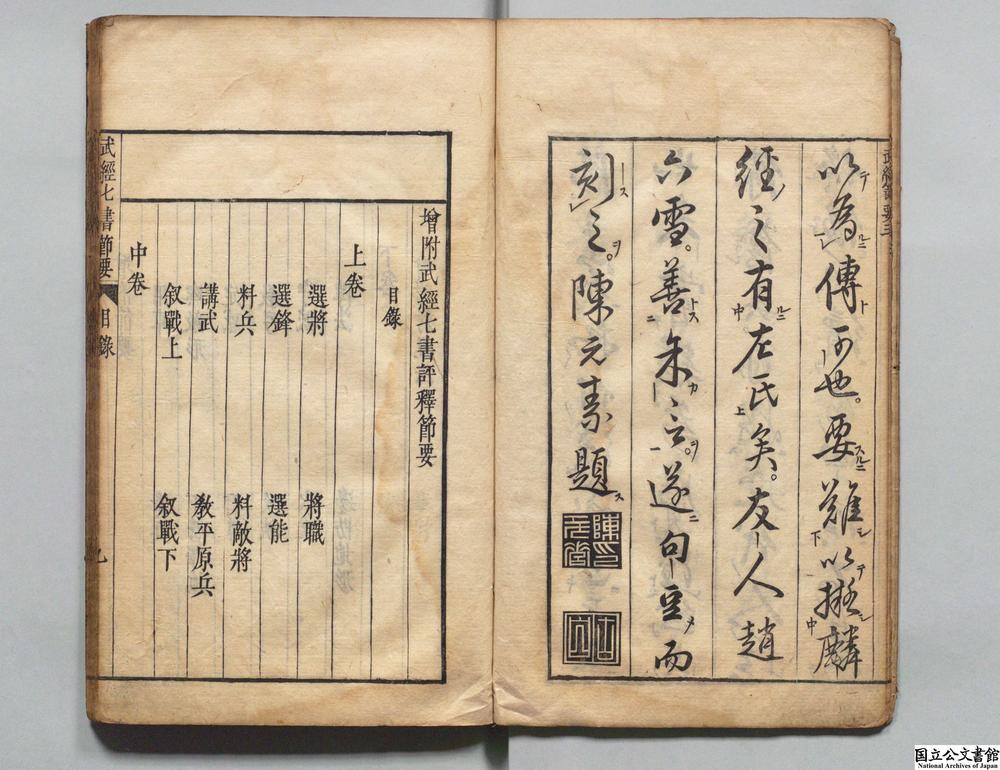 以為傳可也要難以擬麟
經之有左氏矣友人趙
六雪善余言遂句豆而
刻之陳元素題
增附武經七書評釋節要
目錄
上卷
選將 將職
選鋒 選能
料兵 料敵將
講武 教平原兵
叙戰上 叙戰下
中卷
武經七書節要 目錄
国立公文書館
National Archives of Japan